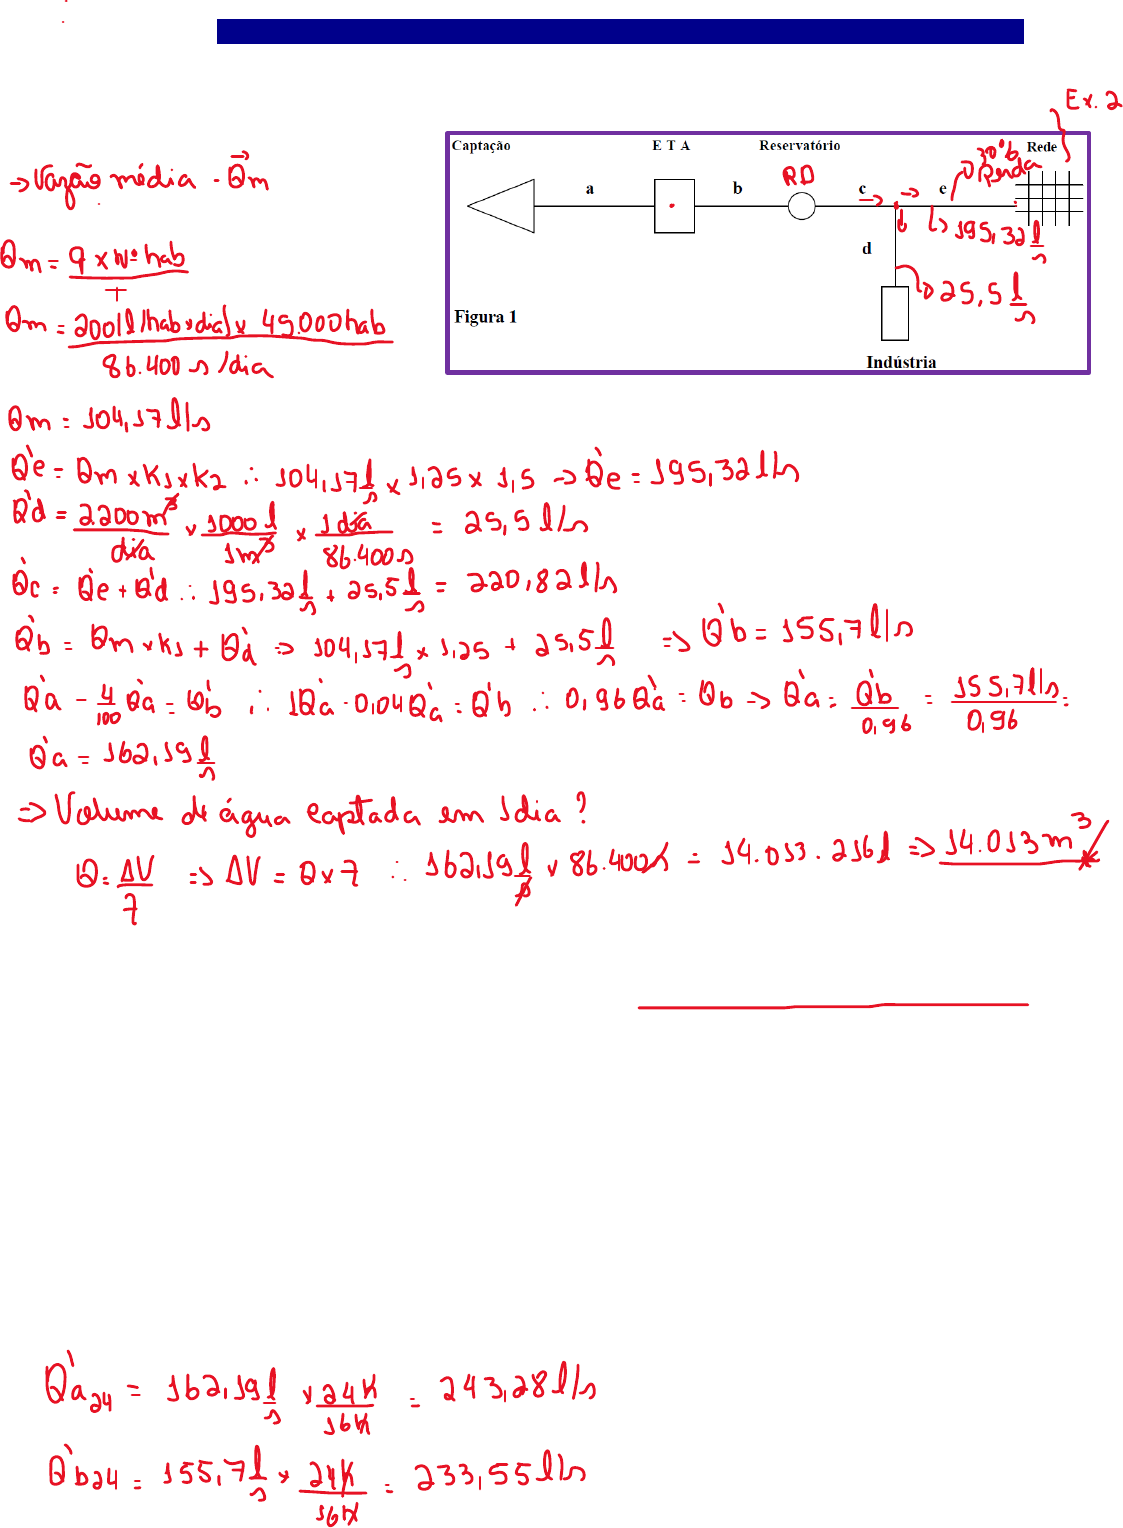 Ex. 2
Captação E T A Reservatório Rede
30%
Perda
RD
a b c e
195,32 l/s
d
25,5 l/s
Figura 1
Indústria
→ Vazão média - Qm
Qm = q x Nº hab / T
Qm = 200(l/hab x dia) x 45.000 hab / 86.400 s/dia
Qm = 104,17 l/s
Qe = Qm x K1 x K2 ∴ 104,17 l/s x 1,25 x 1,5 → Qe = 195,32 l/s
Qd = 2200 m³/dia x 1000 l/1m³ x 1 dia/86.400 s = 25,5 l/s
Qc = Qe + Qd ∴ 195,32 l/s + 25,5 l/s = 220,82 l/s
Qb = Qm x K1 + Qd ⇒ 104,17 l/s x 1,25 + 25,5 l/s ⇒ Qb = 155,7 l/s
Qa - 4/100 Qa = Qb ∴ 1Qa - 0,04Qa = Qb ∴ 0,96Qa = Qb ⇒ Qa = Qb/0,96 = 155,7 l/s / 0,96 =
Qa = 162,19 l/s
⇒ Volume de água captada em 1 dia?
Q = ΔV/7 ⇒ ΔV = Q x 7 ∴ 162,19 l/s x 86.400 s = 14.013.216 l ⇒ 14.013 m³
Qa24 = 162,19 l/s x 24h/16h = 243,28 l/s
Qb24 = 155,7 l/s x 24h/16h = 233,55 l/s